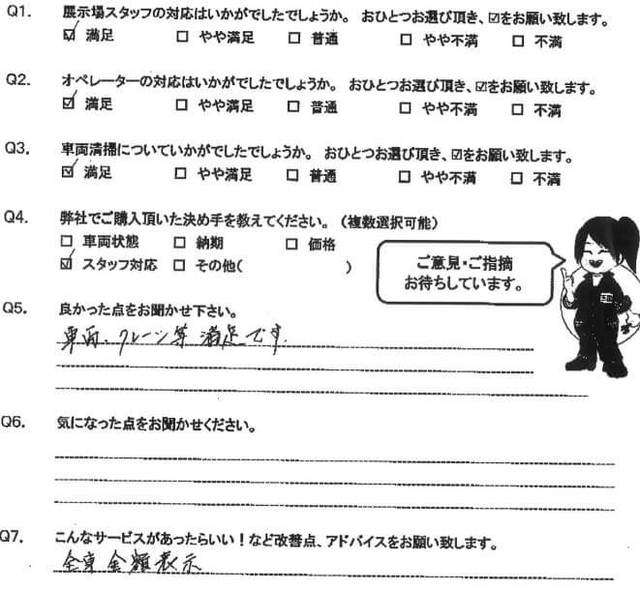 Q1. 展示場スタッフの対応はいかがでしたでしょうか。 おひとつお選び頂き、☑をお願い致します。
☑ 満足 □ やや満足 □ 普通 □ やや不満 □ 不満
Q2. オペレーターの対応はいかがでしたでしょうか。 おひとつお選び頂き、☑をお願い致します。
☑ 満足 □ やや満足 □ 普通 □ やや不満 □ 不満
Q3. 車両清掃についていかがでしたでしょうか。 おひとつお選び頂き、☑をお願い致します。
☑ 満足 □ やや満足 □ 普通 □ やや不満 □ 不満
Q4. 弊社でご購入頂いた決め手を教えてください。（複数選択可能）
□ 車両状態 □ 納期 □ 価格
☑ スタッフ対応 □ その他( )
ご意見・ご指摘
お待ちしています。
Q5. 良かった点をお聞かせ下さい。
車両、クレーン等 満足です.
Q6. 気になった点をお聞かせください。
Q7. こんなサービスがあったらいい！など改善点、アドバイスをお願い致します。
全車金額表示